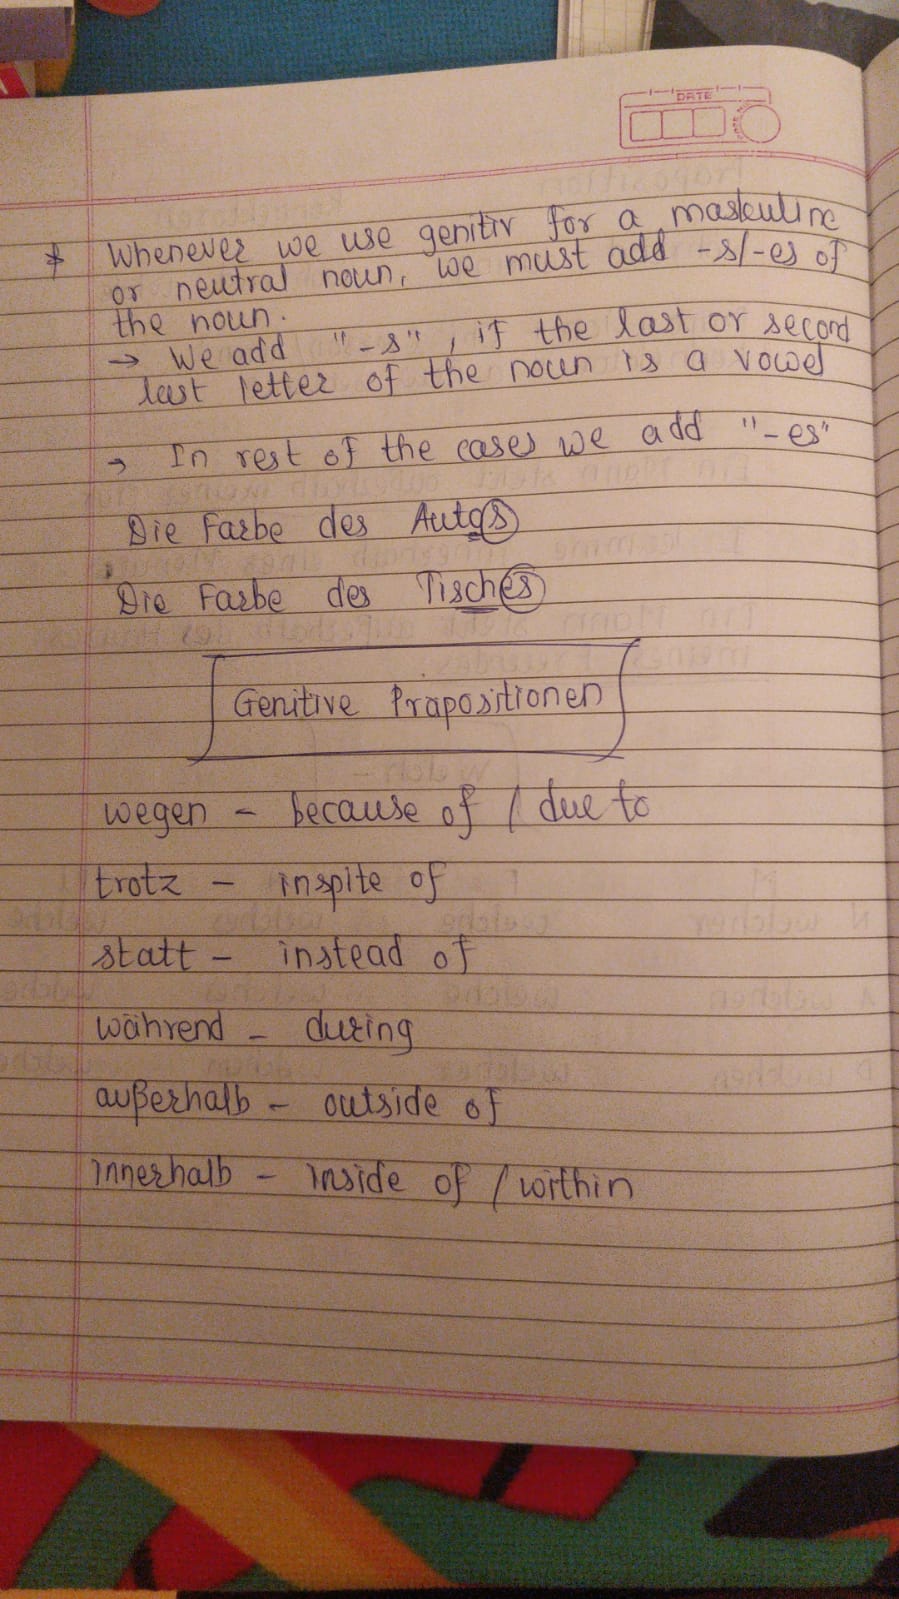 DATE
* Whenever we use genitiv for a maskuline
or neutral noun, we must add -s/-es of
the noun.
→ We add "-s", if the last or second
last letter of the noun is a vowel
→ In rest of the cases we add "-es"
Die Farbe des Autos
Die Farbe des Tisches
Genitive Präpositionen
wegen - because of / due to
trotz - inspite of
statt - instead of
während - during
außerhalb - outside of
innerhalb - inside of / within